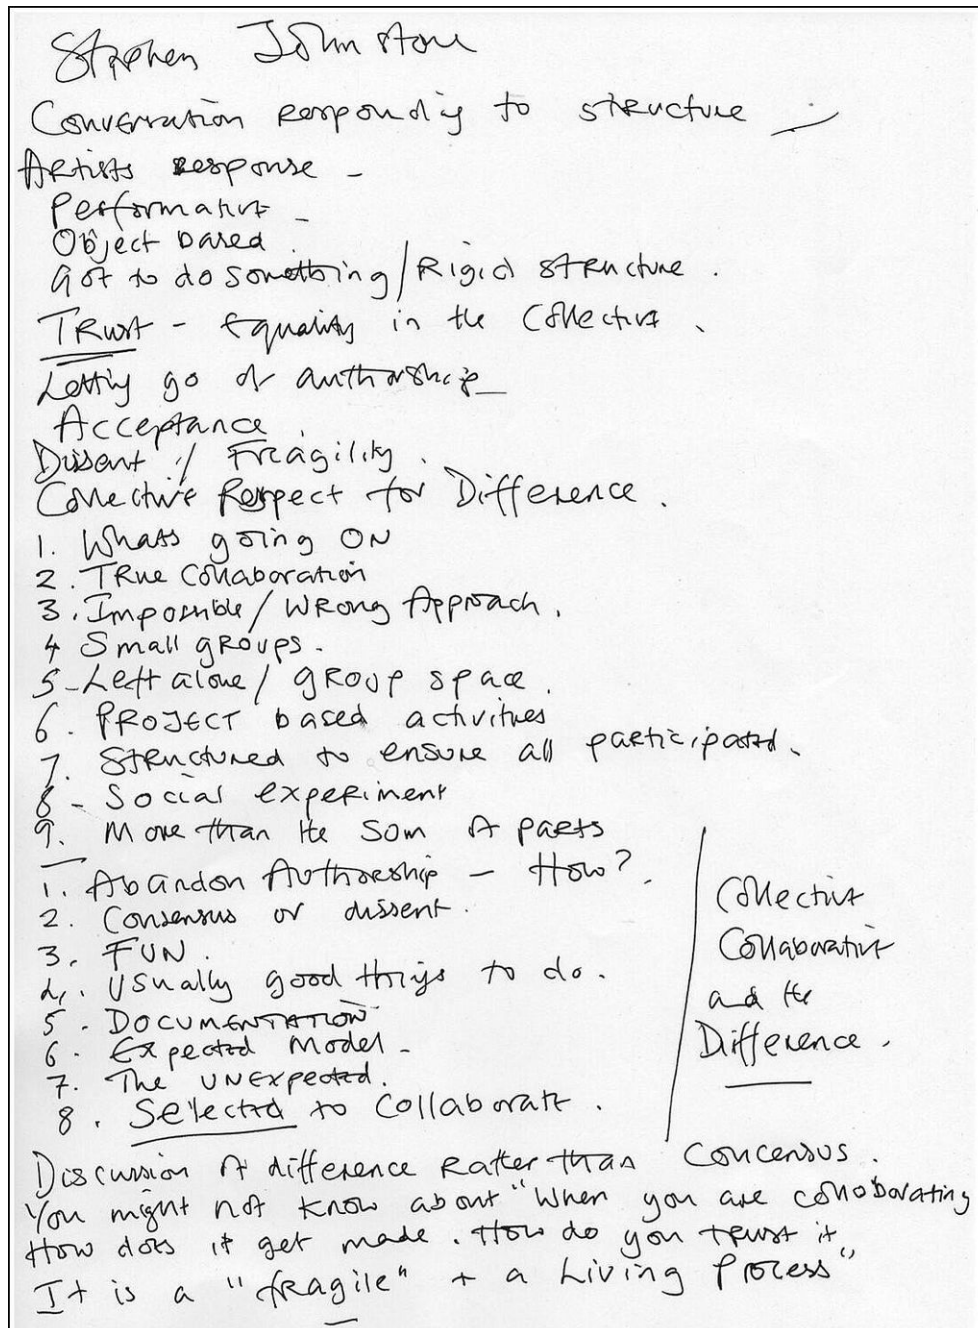 Stephen Johnstone
Conversation responding to structure —
Artists response -
Performative -
Object based.
Got to do something / Rigid structure.
Trust - Equality in the Collective.
Letting go of authorship -
Acceptance.
Dissent / Fragility.
Collective Respect for Difference.
1. Whats going ON
2. TRue Collaboration
3. Impossible / WRong Approach.
4 Small gRoups.
5 - Left alone / gRoup space.
6. PROJECT based activities
7. Structured to ensure all participated.
8 - Social experiment
9. More than the Som of parts
1. Abandon Authorship - How?
2. Consensus or dissent.
3. FUN.
4. Usually good things to do.
5. DOCUMENTATION
6. Expected Model -
7. The UNExpected.
8. Selected to Collaborate.
Collective
Collaborative
and the
Difference.
Discussion of difference Rather than Concensus.
You might not know about "when you are collaborating
How does it get made. How do you trust it
It is a "fragile" + a Living Process"